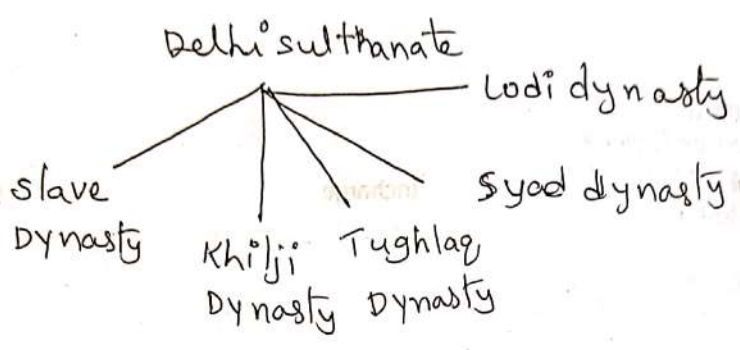 Delhi sulthanate
Lodi dynasty
Slave
Dynasty
Khilji
Dynasty
Tughlaq
Dynasty
Syad dynasty